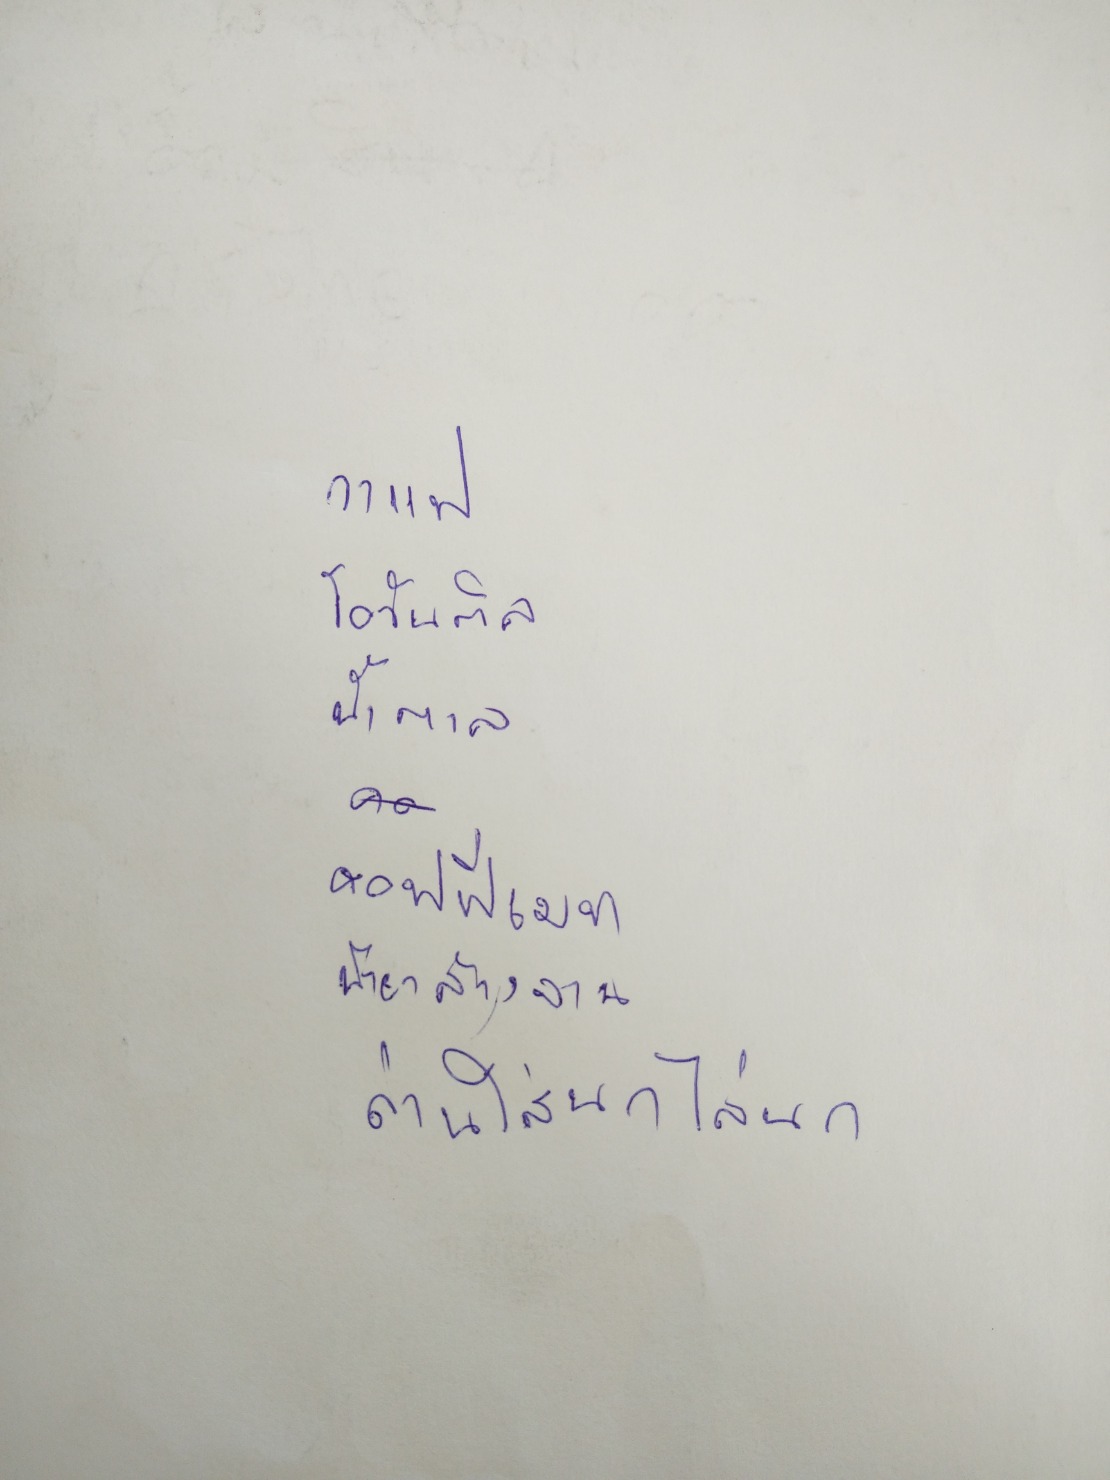 กาแฟ
โอวันติล
น้ำตาล
คอ
คอฟฟีเมท
น้ำยาล้างจาน
ถ่านใส่นกไล่นก